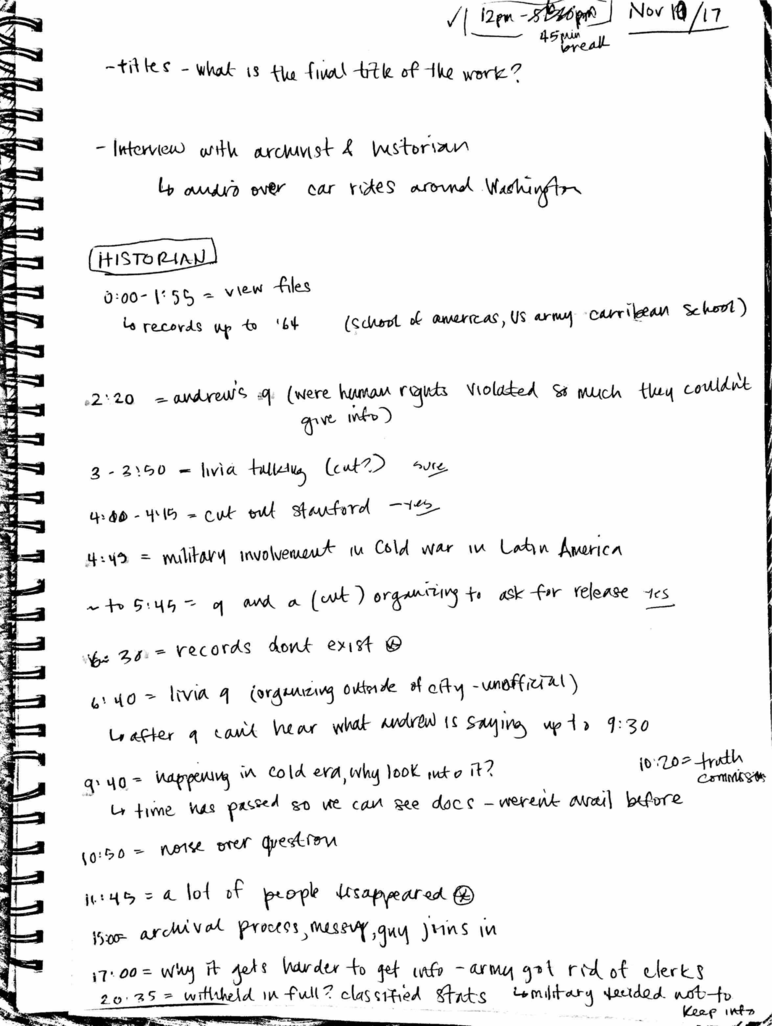 12pm - Nov 10/17
45min
break
- titles - what is the final title of the work?
- Interview with archivist & historian
↳ audio over car rides around Washington
HISTORIAN
0:00-1:55 = view files
↳ records up to '64 (school of americas, US army carribean school)
2:20 = andrew's q (were human rights violated so much they couldn't
give info)
3 - 3:50 = livia talking (cut?) sure
4:00 - 4:15 = cut out stanford - yes
4:45 = military involvement in Cold war in Latin America
~ to 5:45 = q and a (cut) organizing to ask for release yes
6:30 = records dont exist
6:40 = livia q (organizing outside of city - unofficial)
↳ after q can't hear what andrew is saying up to 9:30
10:20 = truth
commission
9:40 = happening in cold era, why look into it?
↳ time has passed so we can see docs - weren't avail before
10:50 = noise over question
11:45 = a lot of people disappeared
15:00 = archival process, messup, guy joins in
17:00 = why it gets harder to get info - army got rid of clerks
20:35 = withheld in full? classified stats ↳ military decided not to
keep info